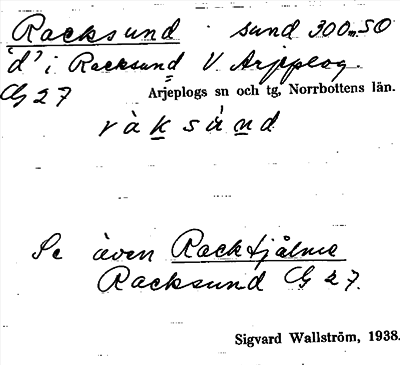 Racksund sund 300m SO
d' i Racksund V. Arjeplog.
Arjeplogs sn och tg, Norrbottens län.
CG 27
ràksànd
Se även Racktjålme
Racksund CG 27.
Sigvard Wallström, 1938.